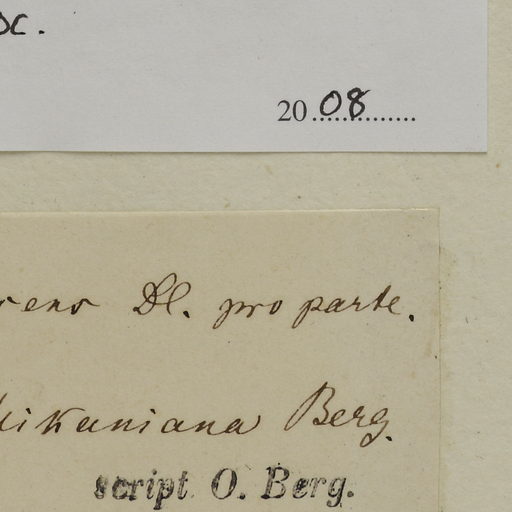 c.
20 08
Dl. pro parte.
ikaniana Berg.
script O. Berg.